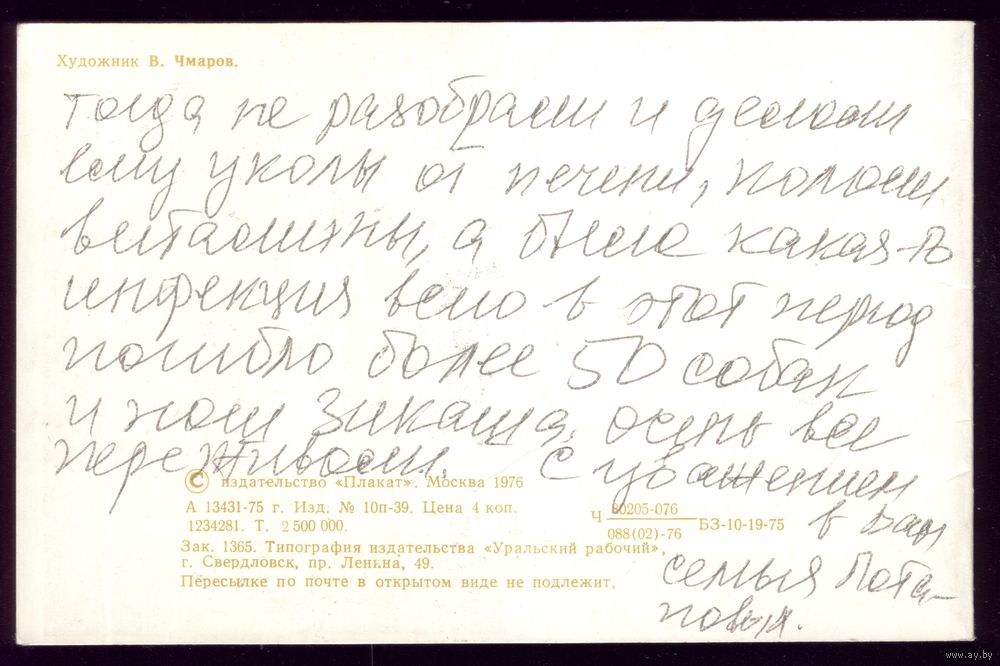 Художник В. Чмаров.
тогда не разобрали и делали
ему уколы от печени, кололи
витамины, а была какая-то
инфекция в этот период
погибло более 50 собак
и наш Зикаша. очень все
переживали. С уважением
© издательство «Плакат». Москва 1976
А 13431-75 г. Изд. № 10п-39. Цена 4 коп.
1234281. Т. 2 500 000.
Ч 80205-076
088(02)-76
БЗ-10-19-75
к Вам
Зак. 1365. Типография издательства «Уральский рабочий»,
г. Свердловск, пр. Ленина, 49.
Пересылке по почте в открытом виде не подлежит.
семья Пота-
повых.
www.ay.by